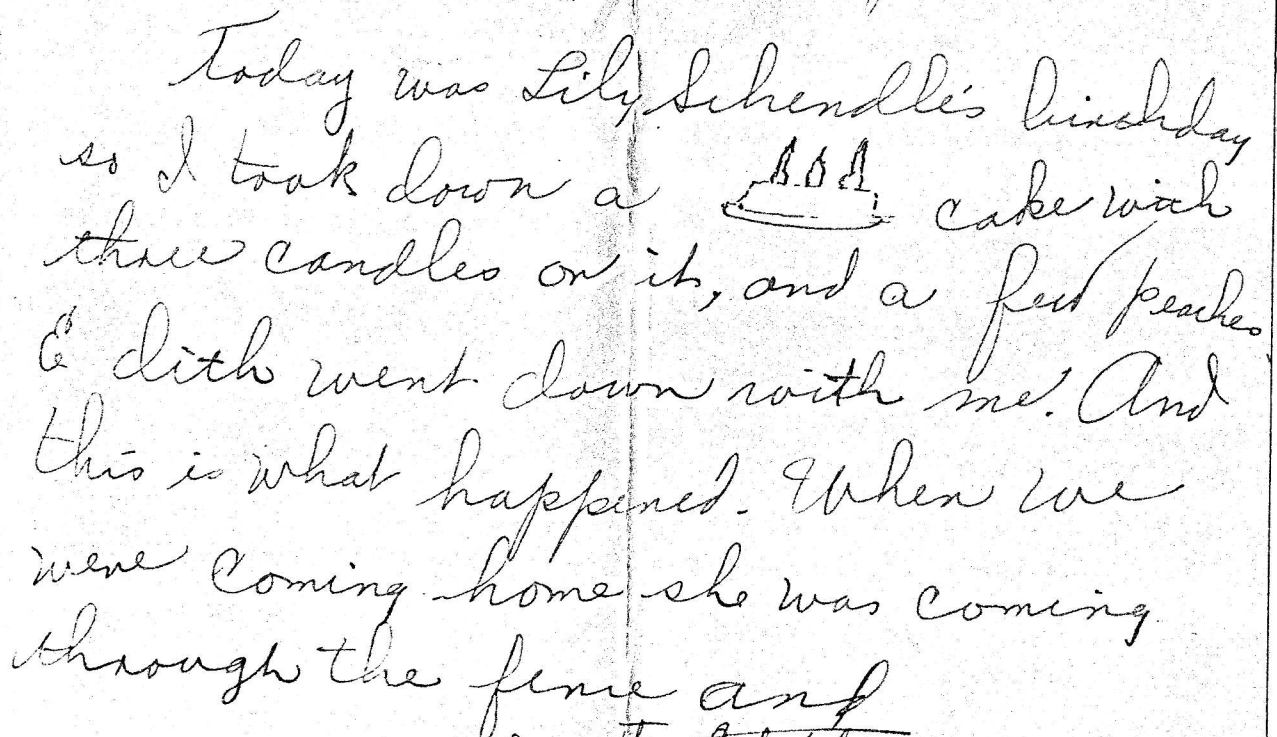 Today was Lily Schendle's birthday
so I took down a cake with
three candles on it, and a few peaches
Edith went down with me. And
this is what happened. When we
were coming home she was coming
through the fence and